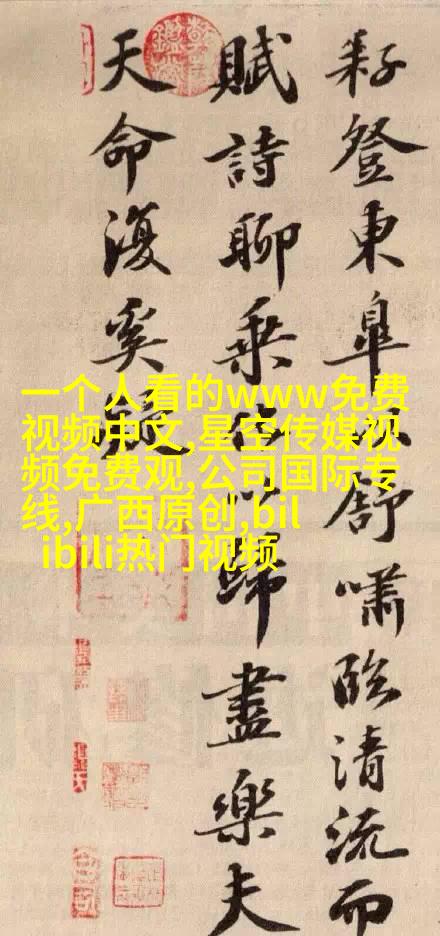 耔登東皋以舒嘯臨清流而
賦詩聊乘化以歸盡樂夫
天命復奚疑
一个人看的www免费
视频中文,星空传媒视
频免费观,公司国际专
线,广西原创,bil
ibili热门视频